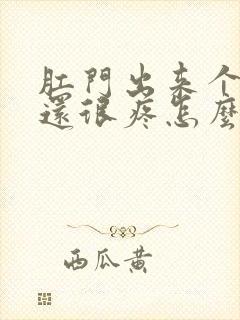 肛門出来个
還很疼怎麼
西瓜黄